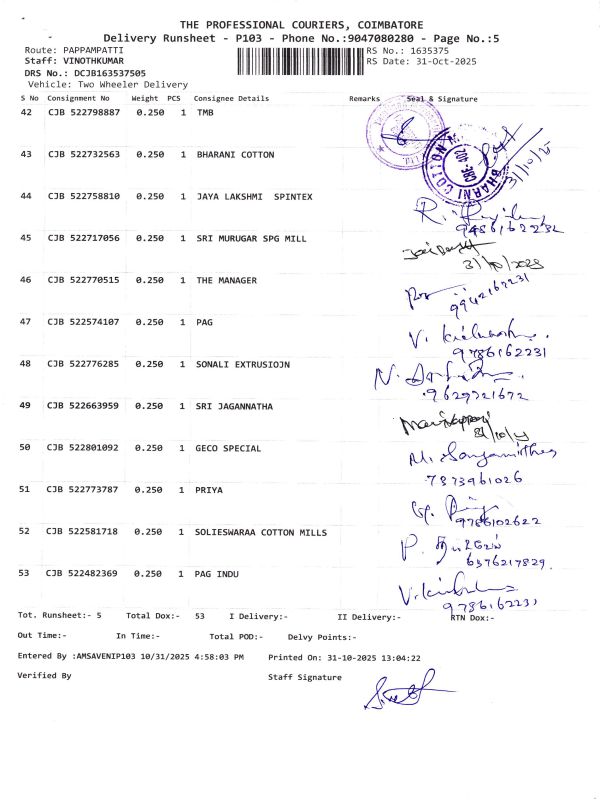 THE PROFESSIONAL COURIERS, COIMBATORE
Delivery Runsheet - P103 - Phone No.:9047080280 - Page No.:5
Route: PAPPAMPATTI
RS No.: 1635375
Staff: VINOTHKUMAR
RS Date: 31-Oct-2025
DRS No.: DCJB163537505
Vehicle: Two Wheeler Delivery
S No Consignment No Weight PCS Consignee Details Remarks Seal & Signature
42 CJB 522798887 0.250 1 TMB
43 CJB 522732563 0.250 1 BHARANI COTTON
BHARANI COTTON
31/10/25
44 CJB 522758810 0.250 1 JAYA LAKSHMI SPINTEX
9486162232
45 CJB 522717056 0.250 1 SRI MURUGAR SPG MILL
31/10/2025
46 CJB 522770515 0.250 1 THE MANAGER
9942167231
47 CJB 522574107 0.250 1 PAG
9786162231
48 CJB 522776285 0.250 1 SONALI EXTRUSIOJN
9629721672
49 CJB 522663959 0.250 1 SRI JAGANNATHA
50 CJB 522801092 0.250 1 GECO SPECIAL
7373961026
51 CJB 522773787 0.250 1 PRIYA
9786102622
52 CJB 522581718 0.250 1 SOLIESWARAA COTTON MILLS
6376217829
53 CJB 522482369 0.250 1 PAG INDU
9786162231
Tot. Runsheet:- 5 Total Dox:- 53 I Delivery:- II Delivery:- RTN Dox:-
Out Time:- In Time:- Total POD:- Delvy Points:-
Entered By :AMSAVENIP103 10/31/2025 4:58:03 PM Printed On: 31-10-2025 13:04:22
Verified By Staff Signature